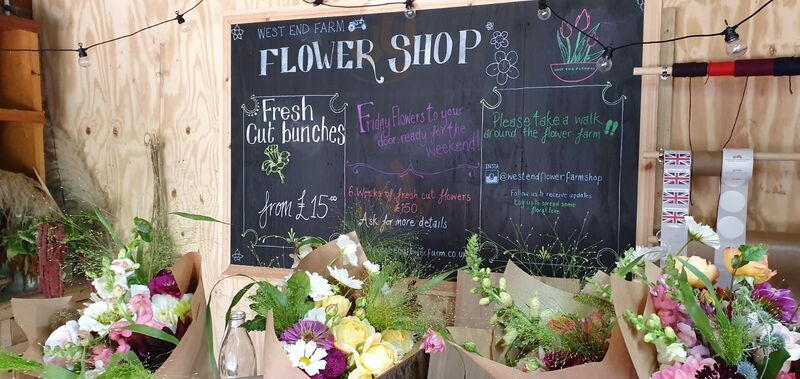 WEST END FARM
FLOWER SHOP
WEST END FLOWERS
Fresh
Cut bunches
from £15.00
Friday Flowers to your
door ready for the
weekend!!
6 Weeks of fresh cut flowers
£150
Ask for more details
farm.co.uk
Please take a walk
around the flower farm!!
INSTA
@westendflowerfarmshop
Follow us to receive updates
Tag us to spread some
floral love